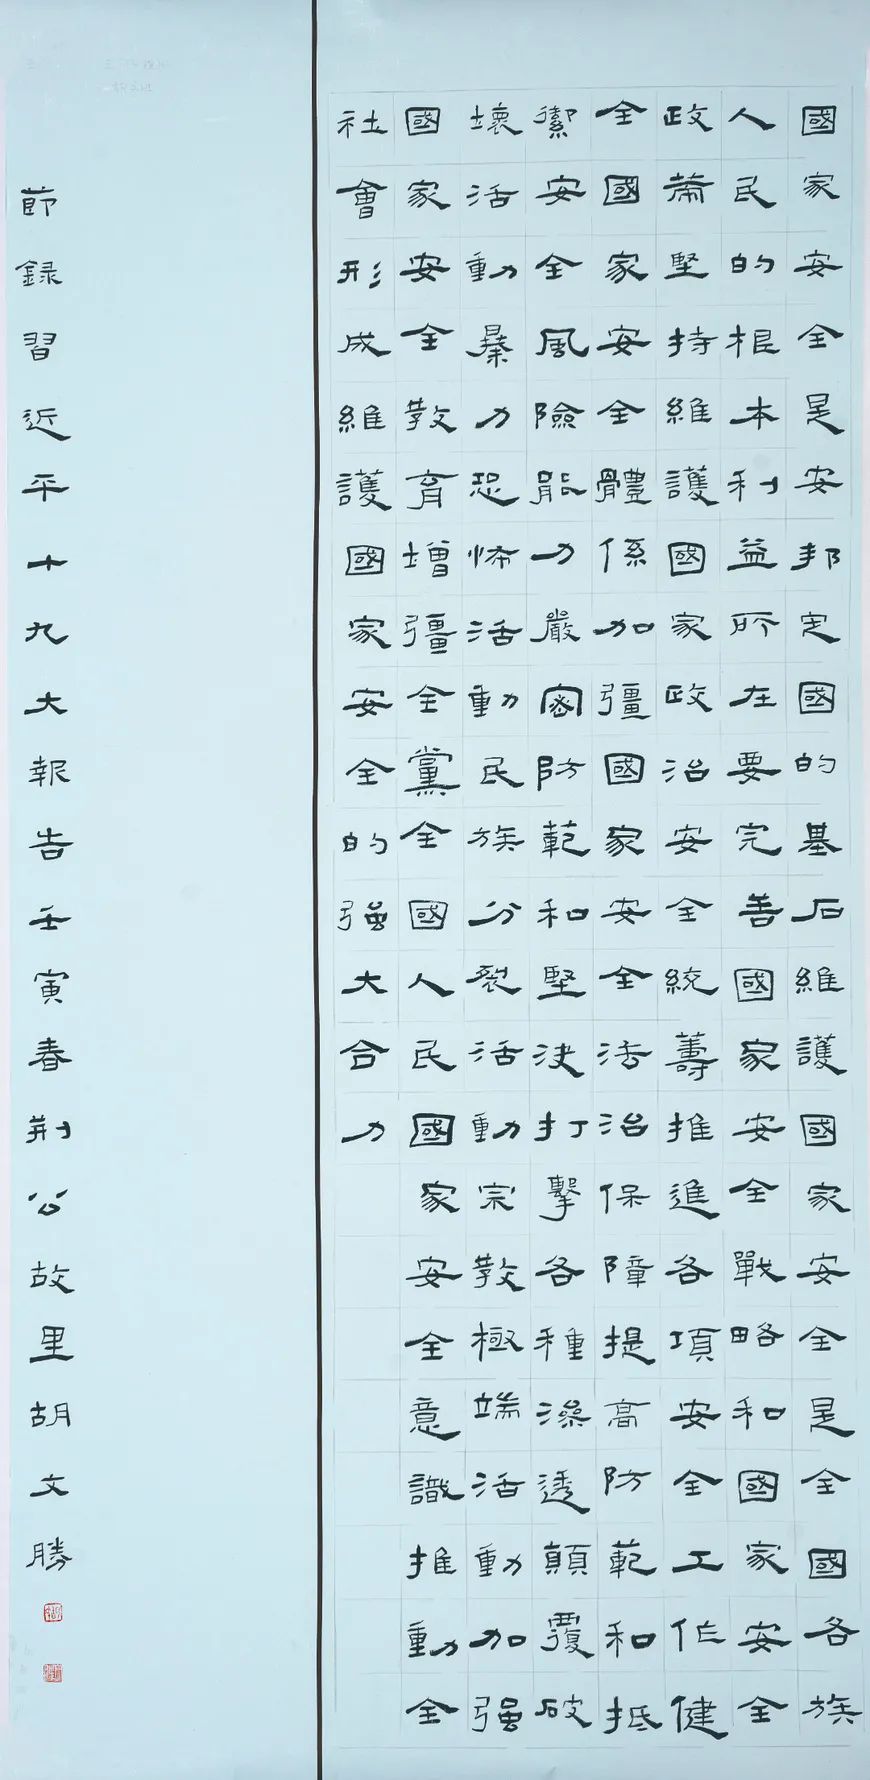 國家安全是安邦定國的基石維護國家安全是全國各族
人民的根本利益所在要完善國家安全戰略和國家安全
政策堅持維護國家政治安全統籌推進各項安全工作健
全國家安全體係加彊國家安全法治保障提高防範和抵
禦安全風險能力嚴密防範和堅決打擊各種滲透顛覆破
壞活動暴力恐怖活動民族分裂活動宗教極端活動加强
國家安全教育增彊全黨全國人民國家安全意識推動全
社會形成維護國家安全的强大合力
節録習近平十九大報告壬寅春荊公故里胡文勝